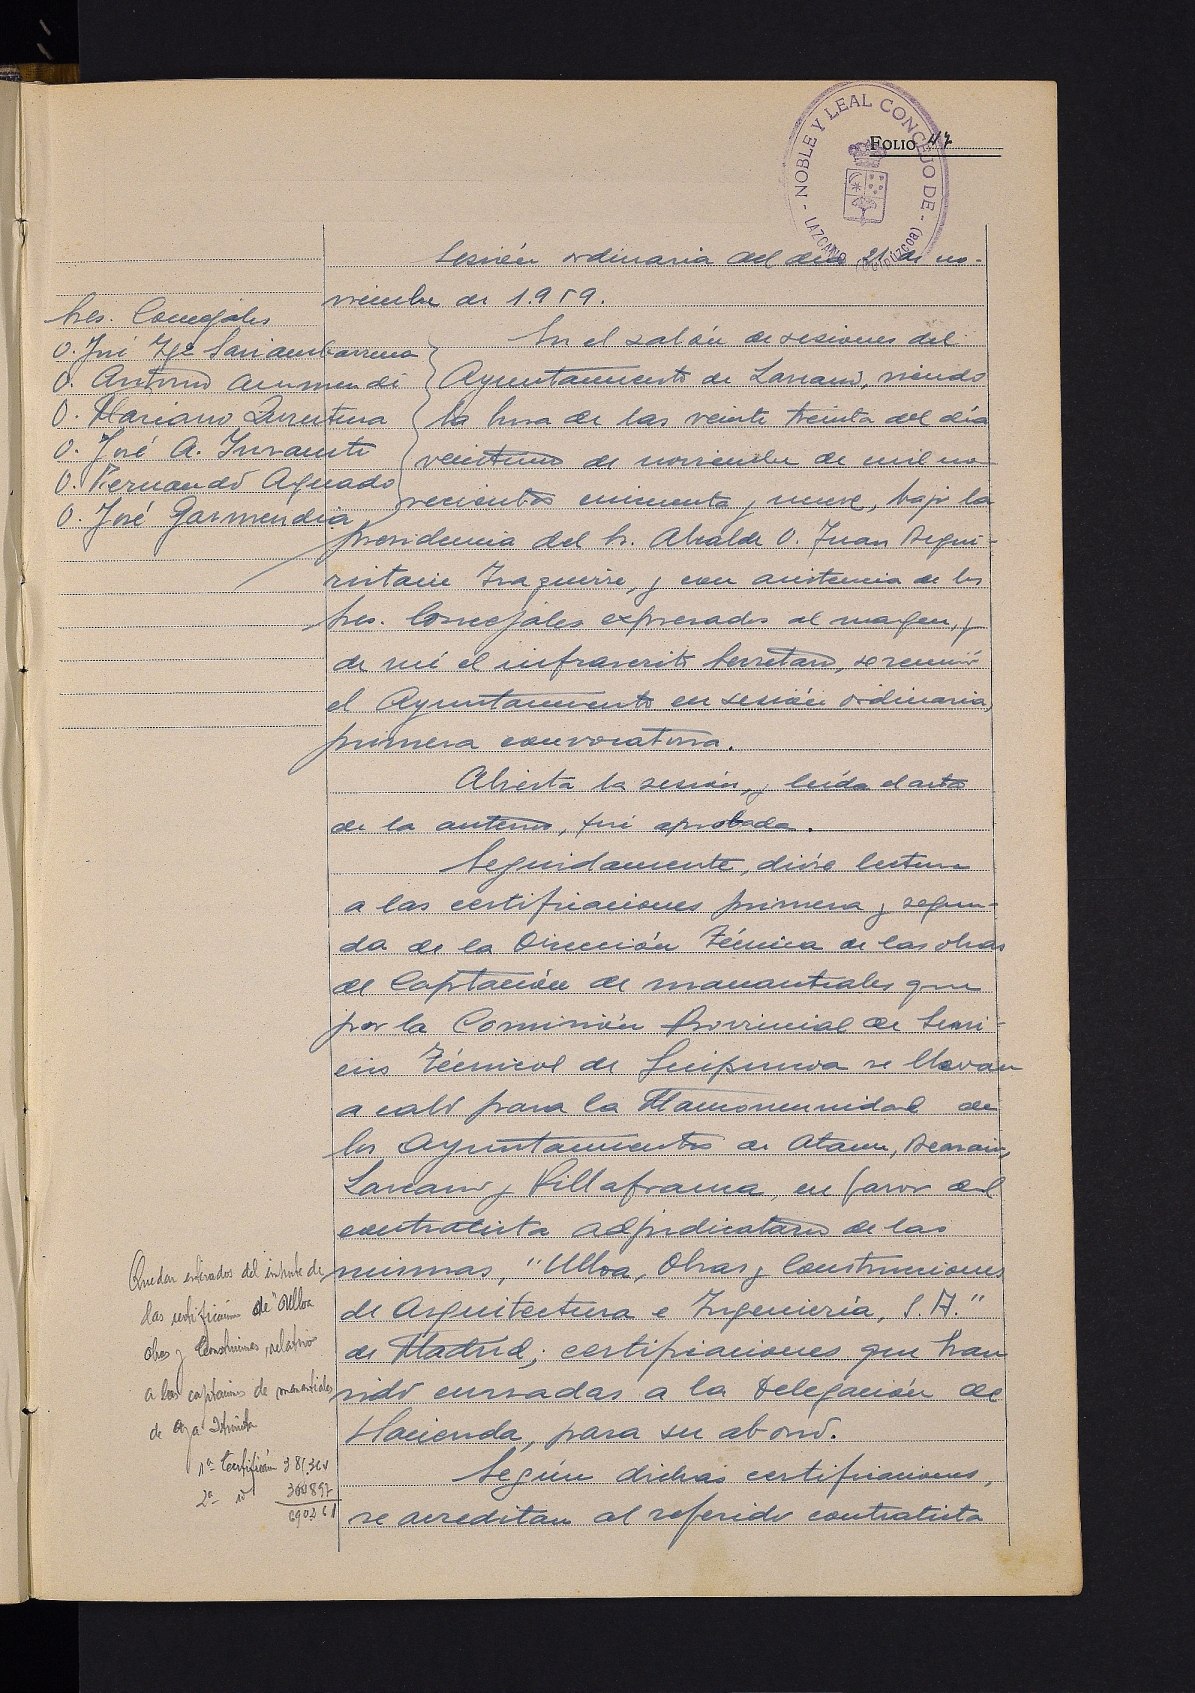 NOBLE Y LEAL CONCEJO DE -
LAZCANO (Guipúzcoa)
FOLIO 47
Sesión ordinaria del día 21 de no-
viembre de 1.959.
Sres. Concejales
D. José Igº Sarianbarrena
D. Antonio Aramendi
D. Mariano Urrestura
D. José A. Insausti
D. Fernando Aguado
D. José Garmendia
En el salón de sesiones del
Ayuntamiento de Lazcano, siendo
la hora de las veinte treinta del día
veintiuno de noviembre de mil no-
vecientos cincuenta y nueve, bajo la
presidencia del Sr. Alcalde D. Juan Begui-
ristain Izaguirre, y con asistencia de los
Sres. Concejales expresados al margen, y
de mí el infrascrito Secretario, se reunió
el Ayuntamiento en sesión ordinaria,
primera convocatoria.
Abierta la sesión, y leída el acta
de la anterior, fué aprobada.
Seguidamente, dióse lectura
a las certificaciones primera y segun-
da de la Dirección Técnica de las obras
de Captación de manantiales que
por la Comisión Provincial de Servi-
cios Técnicos de Guipuzcoa se llevan
a cabo para la Mancomunidad de
los Ayuntamientos de Ataun, Beasain,
Lazcano y Villafranca, en favor del
contratista adjudicatario de las
mismas, "Ulloa, Obras y Construcciones
de Arquitectura e Ingeniería, S.A."
de Madrid; certificaciones que han
sido cursadas a la Delegación de
Hacienda, para su abono.
Según dichas certificaciones,
se acreditan al referido contratista
Quedan enterados del importe de
las certificación de "Ulloa
obras y Construcciones, relativo
a las captacions de manantiales
de
1ª Certificación
2ª id 300897